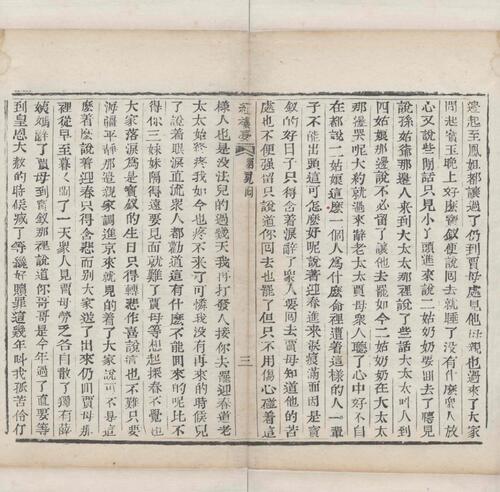 邊起至鳳姐都讓過了仍到賈母處見他母親也過來了大家
問起寶玉晚上好麼寶釵便說回去就睡了沒有什麼衆人放
心又說些閒話只見小丫頭進來說二姑奶奶要回去了聽見
說孫姑爺那邊人來到大太太那裡說了些話大太太叫人到
四姑娘那邊說不必留了讓他去罷如今二姑奶奶在大太太
那邊哭呢大約就過來辭老太太賈母衆人聽了心中好不自
在都說二姑娘這麼一個人爲什麼命裡遭着這樣的人一輩
子不能出頭這可怎麼好呢說着迎春進來淚痕滿面因是寶
釵的好日子只得含着淚辭了衆人要回去賈母知道他的苦
處也不便強留只說道你回去也罷了但只不用傷心碰着這
紅樓夢
三
樣人也是沒法兒的過幾天我再打發人接你去罷迎春道老
太太始終疼我如今也疼不來了可憐我沒有再來的時候兒
了說着眼淚直流衆人都勸道這有什麼不能回來的呢比不
得你三妹妹隔得遠要見面就難了賈母等想起探春不覺也
大家落淚爲是寶釵的生日只得轉悲作喜說這也不難只要
海疆平靜那邊親家調進京來就見的着了大家說可不是這
麼着麼說着迎春只得含悲而別大家送了出來仍回賈母那
裡從早至暮又鬧了一天衆人見賈母勞乏各自散了獨有薛
姨媽辭了賈母到寶釵那裡說道你哥哥是今年過了直要等
到皇恩大赦的時候減了等纔好贖罪這幾年叫我孤苦伶仃